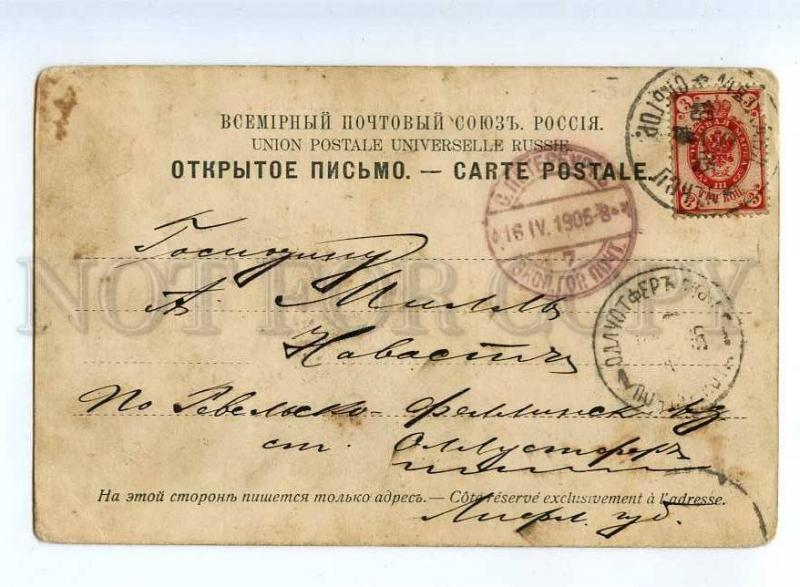 ВСЕМІРНЫЙ ПОЧТОВЫЙ СОЮЗЪ. РОССІЯ.
UNION POSTALE UNIVERSELLE RUSSIE.
ОТКРЫТОЕ ПИСЬМО. — CARTE POSTALE.
16 IV. 1905
7
ГОР. ПОЧТ.
3
3
Господину
А. Милль
Навастъ
По Ревельско-Феллинск.
ст. Оллустферъ
На этой сторонѣ пишется только адресъ. — Côté réservé exclusivement à l'adresse.
Лифл. губ.
NOT FOR COPY